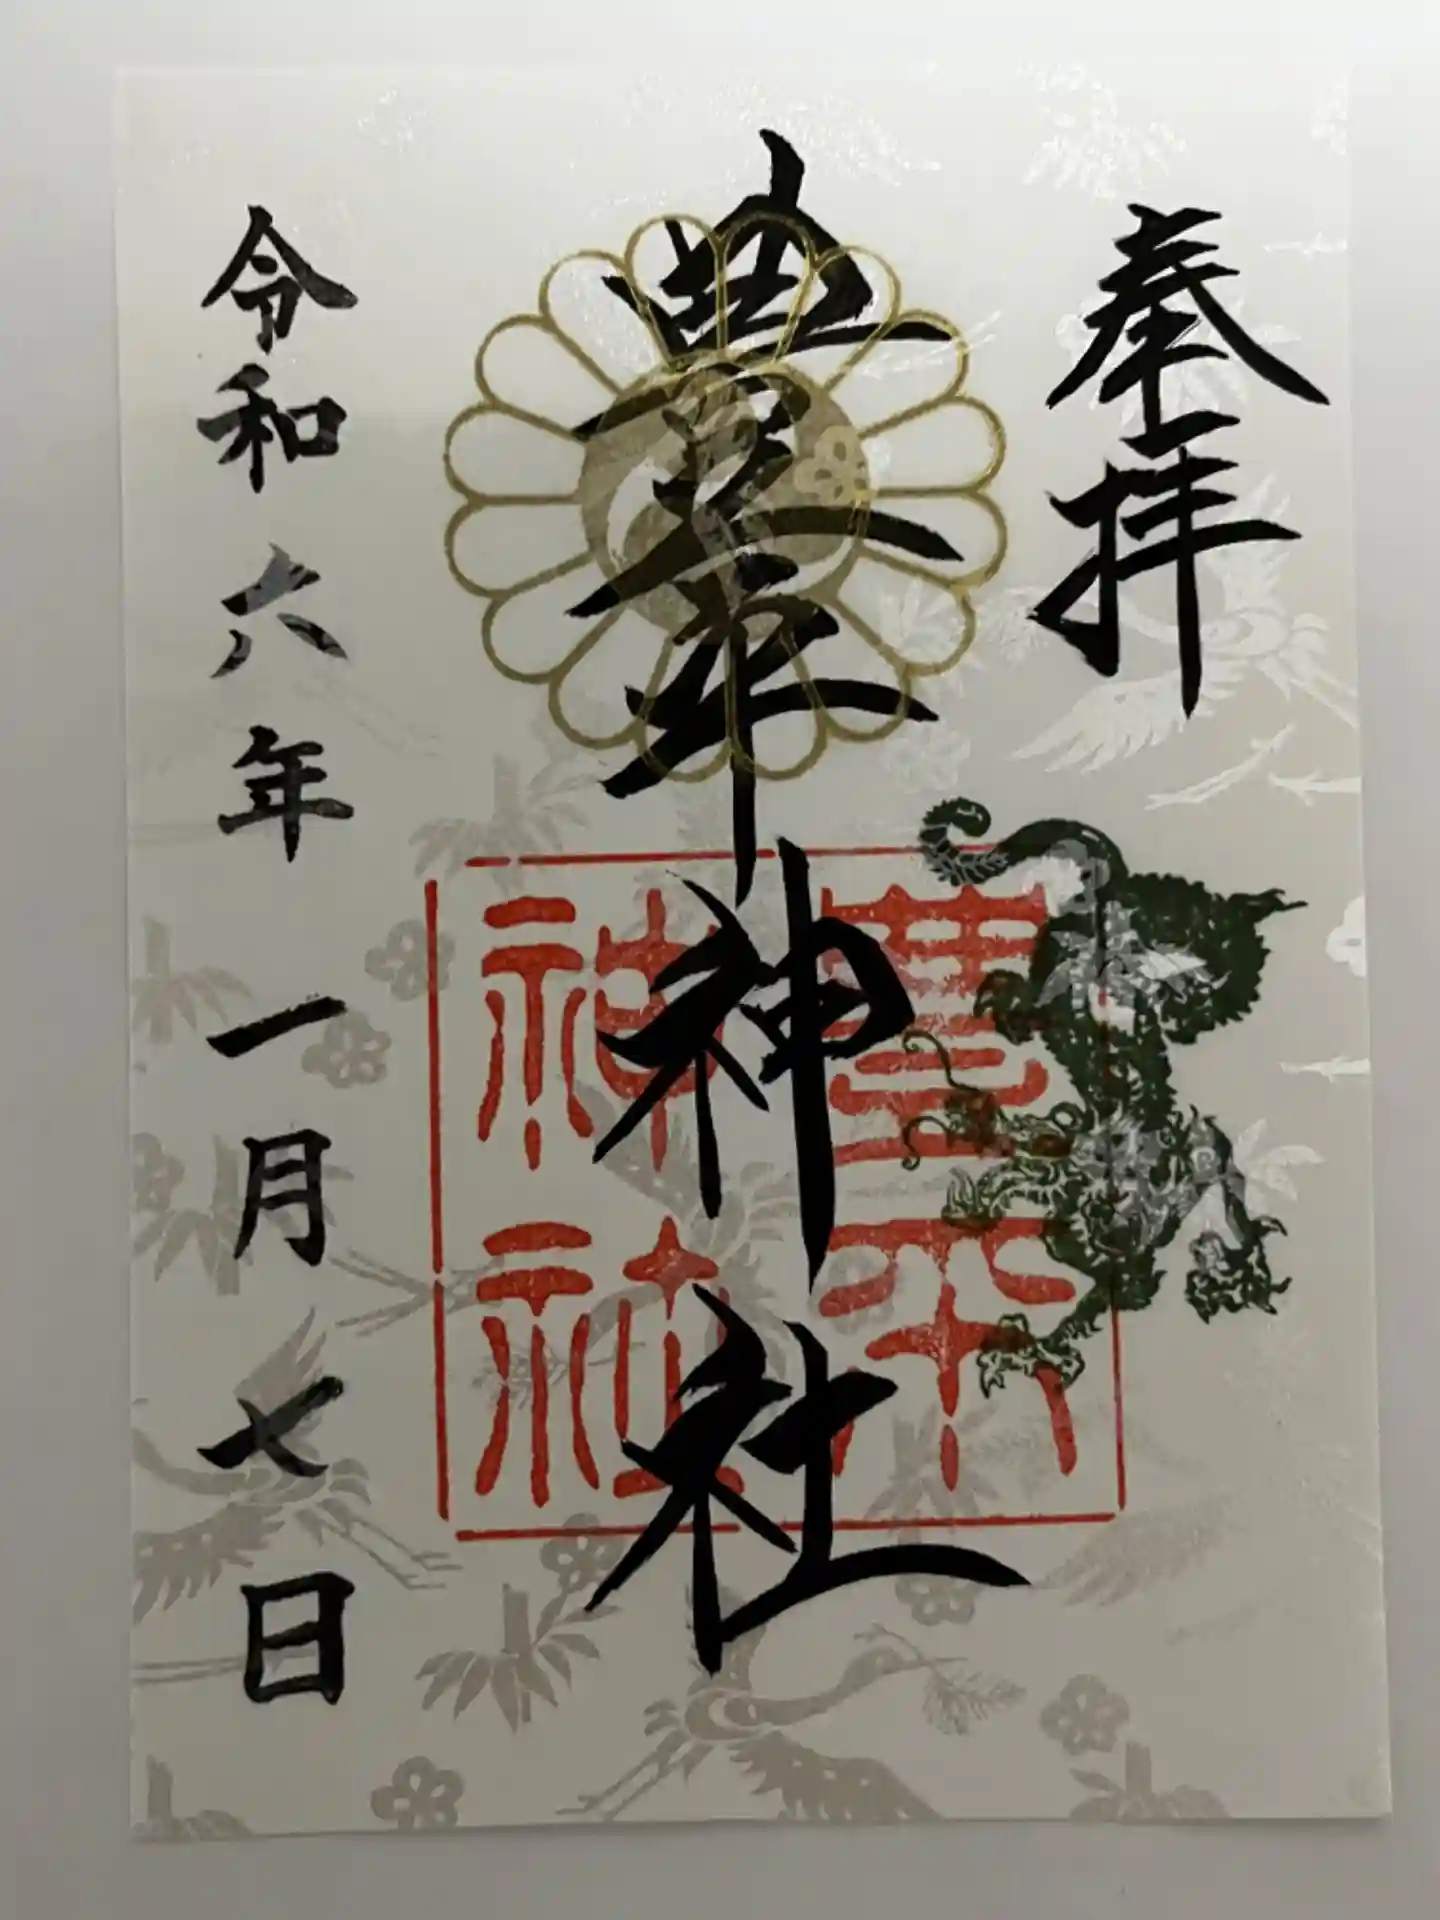 奉拝
豊平神社
豊平
神社
令和六年一月七日